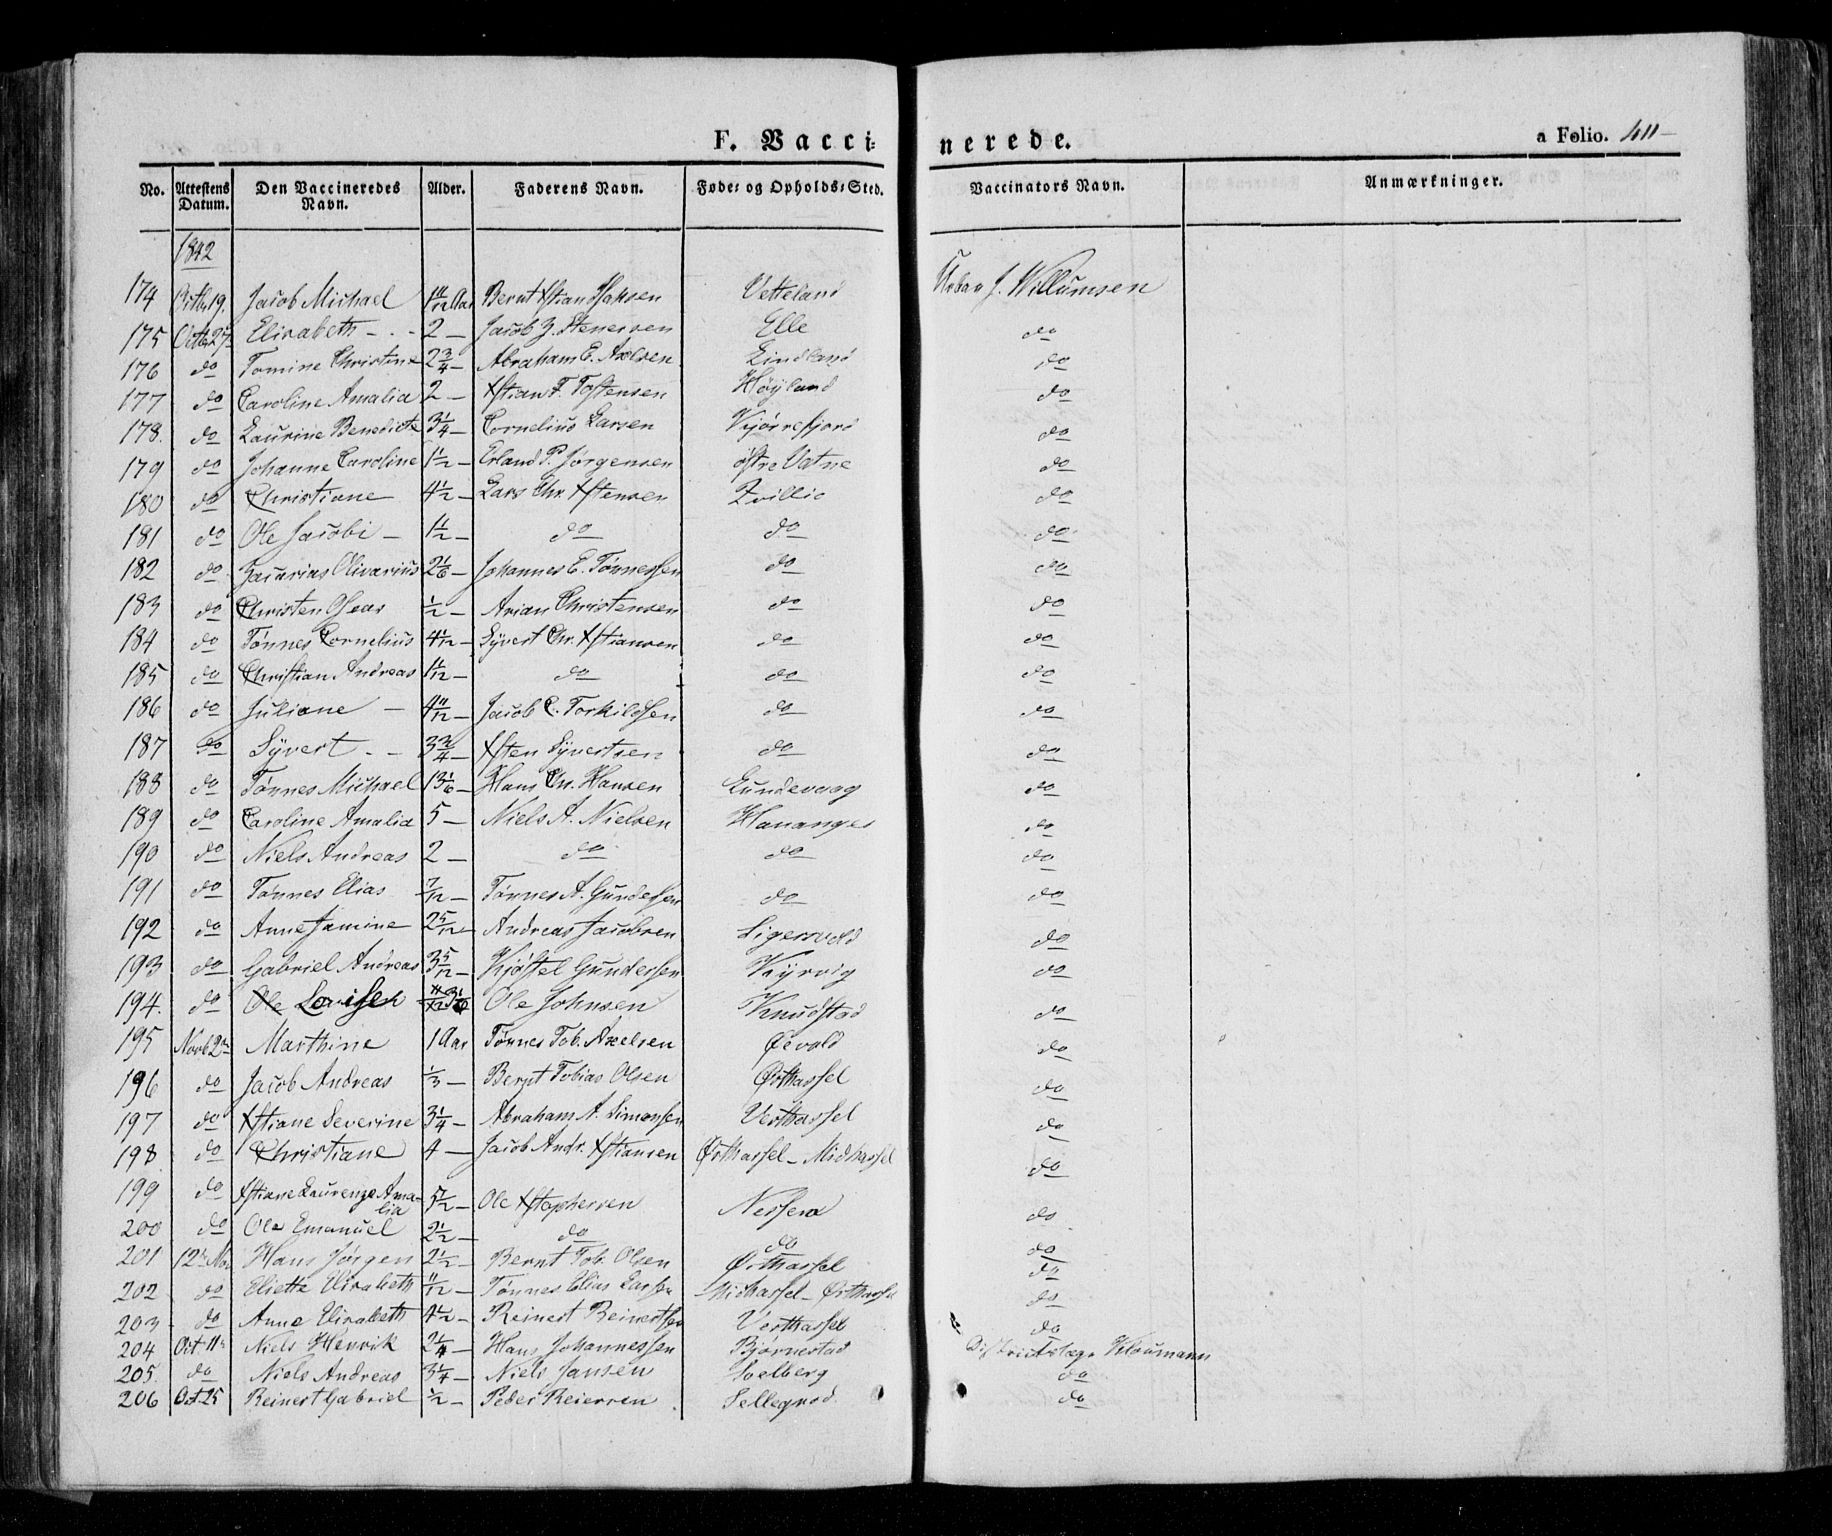 F. Vacci-nerede.
a Folio. 411
No. Attestens Datum. Den Vaccineredes Navn. Alder. Faderens Navn. Føde- og Opholds-Sted. Vaccinators Navn. Anmærkninger.
1842
174 Octb. 19. Jacob Michael 1 11/12 Aar Bernt Xstian Hansen Vetteland Urban J. Willumsen
175 Octb. 27 Elisabeth - . - 2 — Jacob Z. Stenersen Elle do
176 do Tomine Christine 2 3/4 — Abraham E. Axelsen Lindland do
177 do Caroline Amalia 2 — Xstian F. Tostensen Høyland do
178. do Laurine Benedicte 3 1/4 — Cornelius Larsen Kjørrefjord do
179 do Johanne Caroline 1 1/2 — Erland P. Jørgensen østre Vatne do
180 do Christiane 4 1/2 — Lars Chr. Xstensen do
181 do Ole Jacobi — 1 1/2 — do do do
182 do Zacarias Olivarius 2 1/6 — Johannes E. Tønnessen do do
183 do Christen Oseas 1/2 — Arian Christensen do do
184 do Tønnes Cornelius 4 1/12 — Syvert Chr. Xstiansen do do
185 do Christian Andreas 1 1/12 — do do do
186 do Juliane — 4 11/12 — Jacob C. Torkildsen do do
187 do Syvert - - 3 3/4 — Xsten Syvertsen do do
188 do Tønnes Michael 13 1/6 — Hans Chr. Hansen Lundevaag do
189 do Caroline Amalia 5 — Niels A. Nielsen Hananger do
190 do Niels Andreas 2 — do do do
191 do Tønnes Elias 7/12 — Tønnes A. Gundersen do do
192 do Anne Jamine 2 5/12 — Andreas Jacobsen Ligersvold do
193 do Gabriel Andreas 3 5/12 — Kjøstel Gundersen Kyrvig do
194. do Ole Lovise 3 1/6 Ole Johnsen Knudstad do
195 Novb 2den Marthine 1 Aar Tønnes Tob. Axelsen Øevold do
196 do Jacob Andreas 1/3 — Bernt Tobias Olsen Østhassel do
197 do Xstiane Severine 3 1/4 — Abraham A. Simonsen Vesthassel do
198 do Christiane 4 — Jacob Andr. Xstiansen Østhassel - Midhassel do
199 do Xstiane Laurenze Ama-
lia 5 1/2 — Ole Xstophersen Nessem do
200 do Ole Emanuel 2 1/2 — do do do
201 12te Nov Hans Jørgen 2 1/2 — Bernt Tob. Olsen Østhassel do
202 do Eliette Elisabeth 11/12 — Tønnes Elias Larsen Midhassel - Østhassel do
203 do Anne Elisabeth 4 1/2 — Reinert Reinertsen Vesthassel do
204 Oct. 11te Niels Henrik 2 1/4 — Hans Johannessen Bjørnestad Districtslæge Kloumann
205. do Niels Andreas 3 1/4 — Niels Jansen Soelberg do
206 Oct. 25 Reinert Gabriel 1/2 — Peder Reiersen Sellegrod do